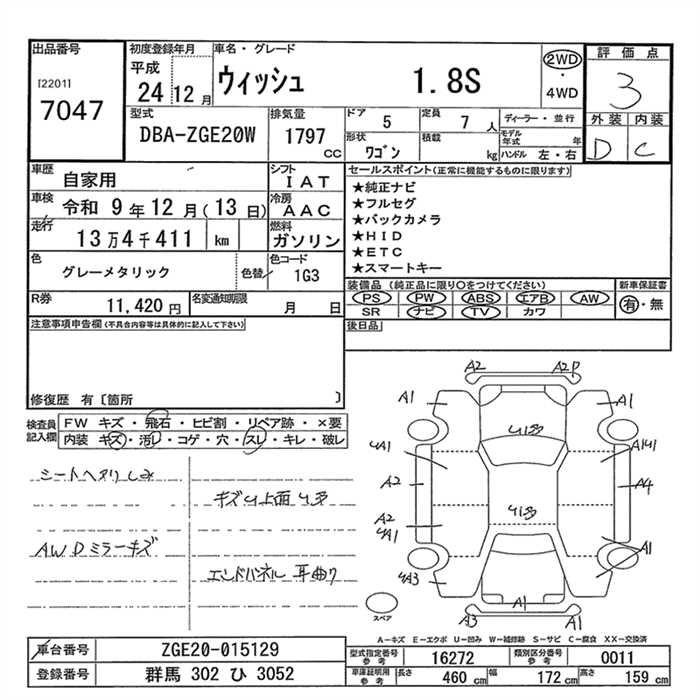 出品番号
[2201]
7047
初度登録年月
平成
24 12 月
車名・グレード
ウィッシュ 1.8S
2WD
・
4WD
評価点
3
外装 内装
D C
型式
DBA-ZGE20W
排気量
1797
CC
ドア
5
定員
7 人
形状
ワゴン
積載
kg
ディーラー・並行
モデル年式 年
ハンドル 左・右
車歴
自家用
シフト
IAT
車検
令和 9 年 12 月(13 日)
冷房
AAC
走行
13万4千411 km
燃料
ガソリン
色
グレーメタリック
色替
色コード
1G3
R券
11,420 円
名変通知期限
月 日
セールスポイント(正常に機能するものに限ります)
★純正ナビ
★フルセグ
★バックカメラ
★HID
★ETC
★スマートキー
装備品 (純正品に限り○をつけてください)
PS PW ABS エアB AW
SR ナビ TV カワ
新車保証書
有・無
後日品
注意事項申告欄(不具合内容等は具体的に記入して下さい)
修復歴 有〔箇所 〕
検査員記入欄
FW キズ・飛石・ヒビ割・リペア跡・×要
内装 キズ・汚レ・コゲ・穴・スレ・キレ・破レ
シートヘタリ しみ
AWDミラーキズ
キズ凹上面凹多
エンドパネル 耳曲り
A2 A2P
A1 A1
凹多
4A1 A1 4A1
A2 A4
凹多
A2
4A1
A1
4A3
A3 A1 A3
スペア
A−キズ E−エクボ U−凹み W−補修跡 S−サビ C−腐食 XX−交換済
車台番号 ZGE20-015129
登録番号 群馬 302 ひ 3052
型式指定番号 参考 16272
類別区分番号 参考 0011
車庫証明用 参考
長さ 460 cm
幅 172 cm
高さ 159 cm